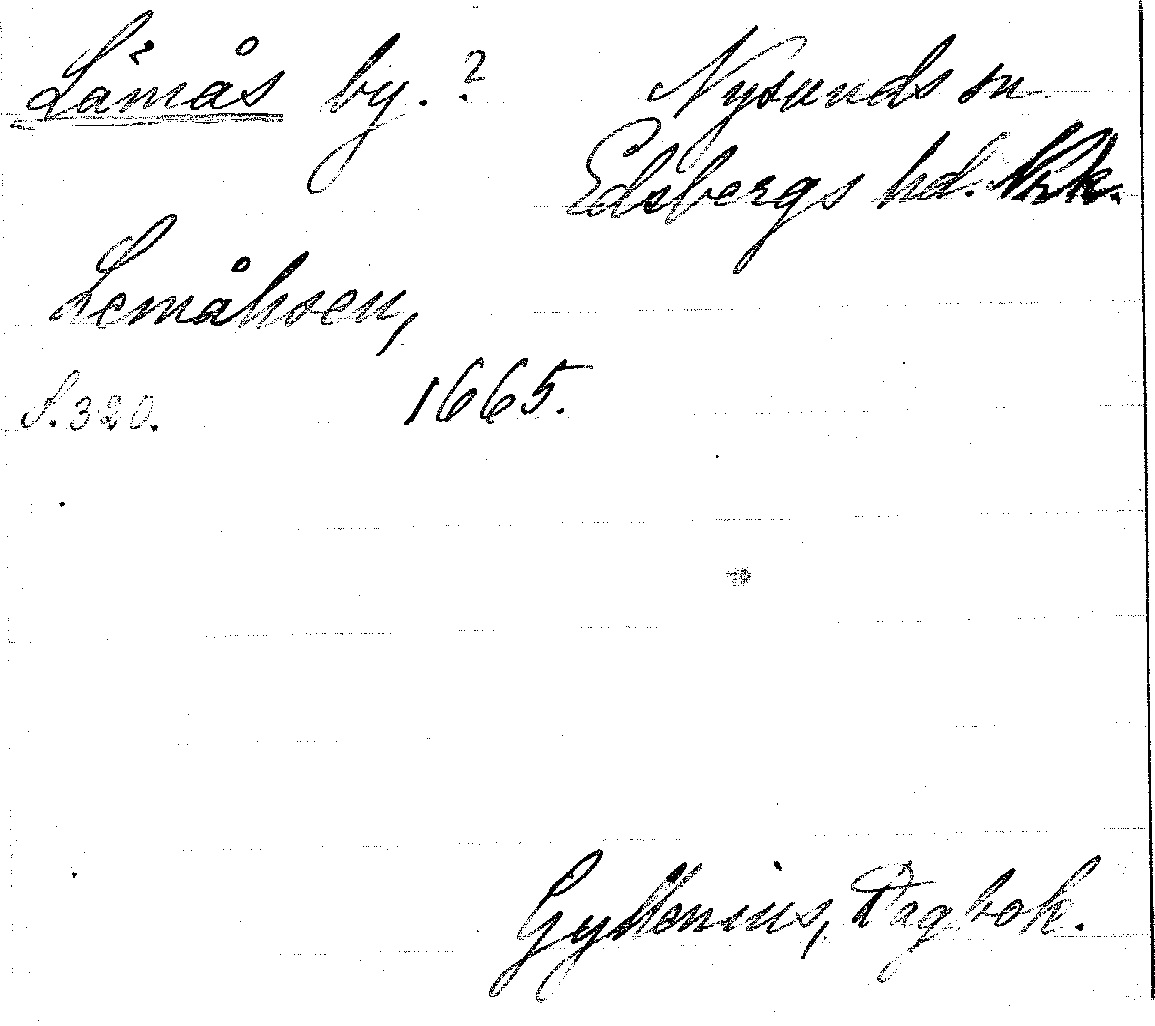 Låmås by. ? Nysunds sn
Edsbergs hd. Nrk.
Lemåhsen,
S. 320. 1665.
Gyllenius, Dagbok.